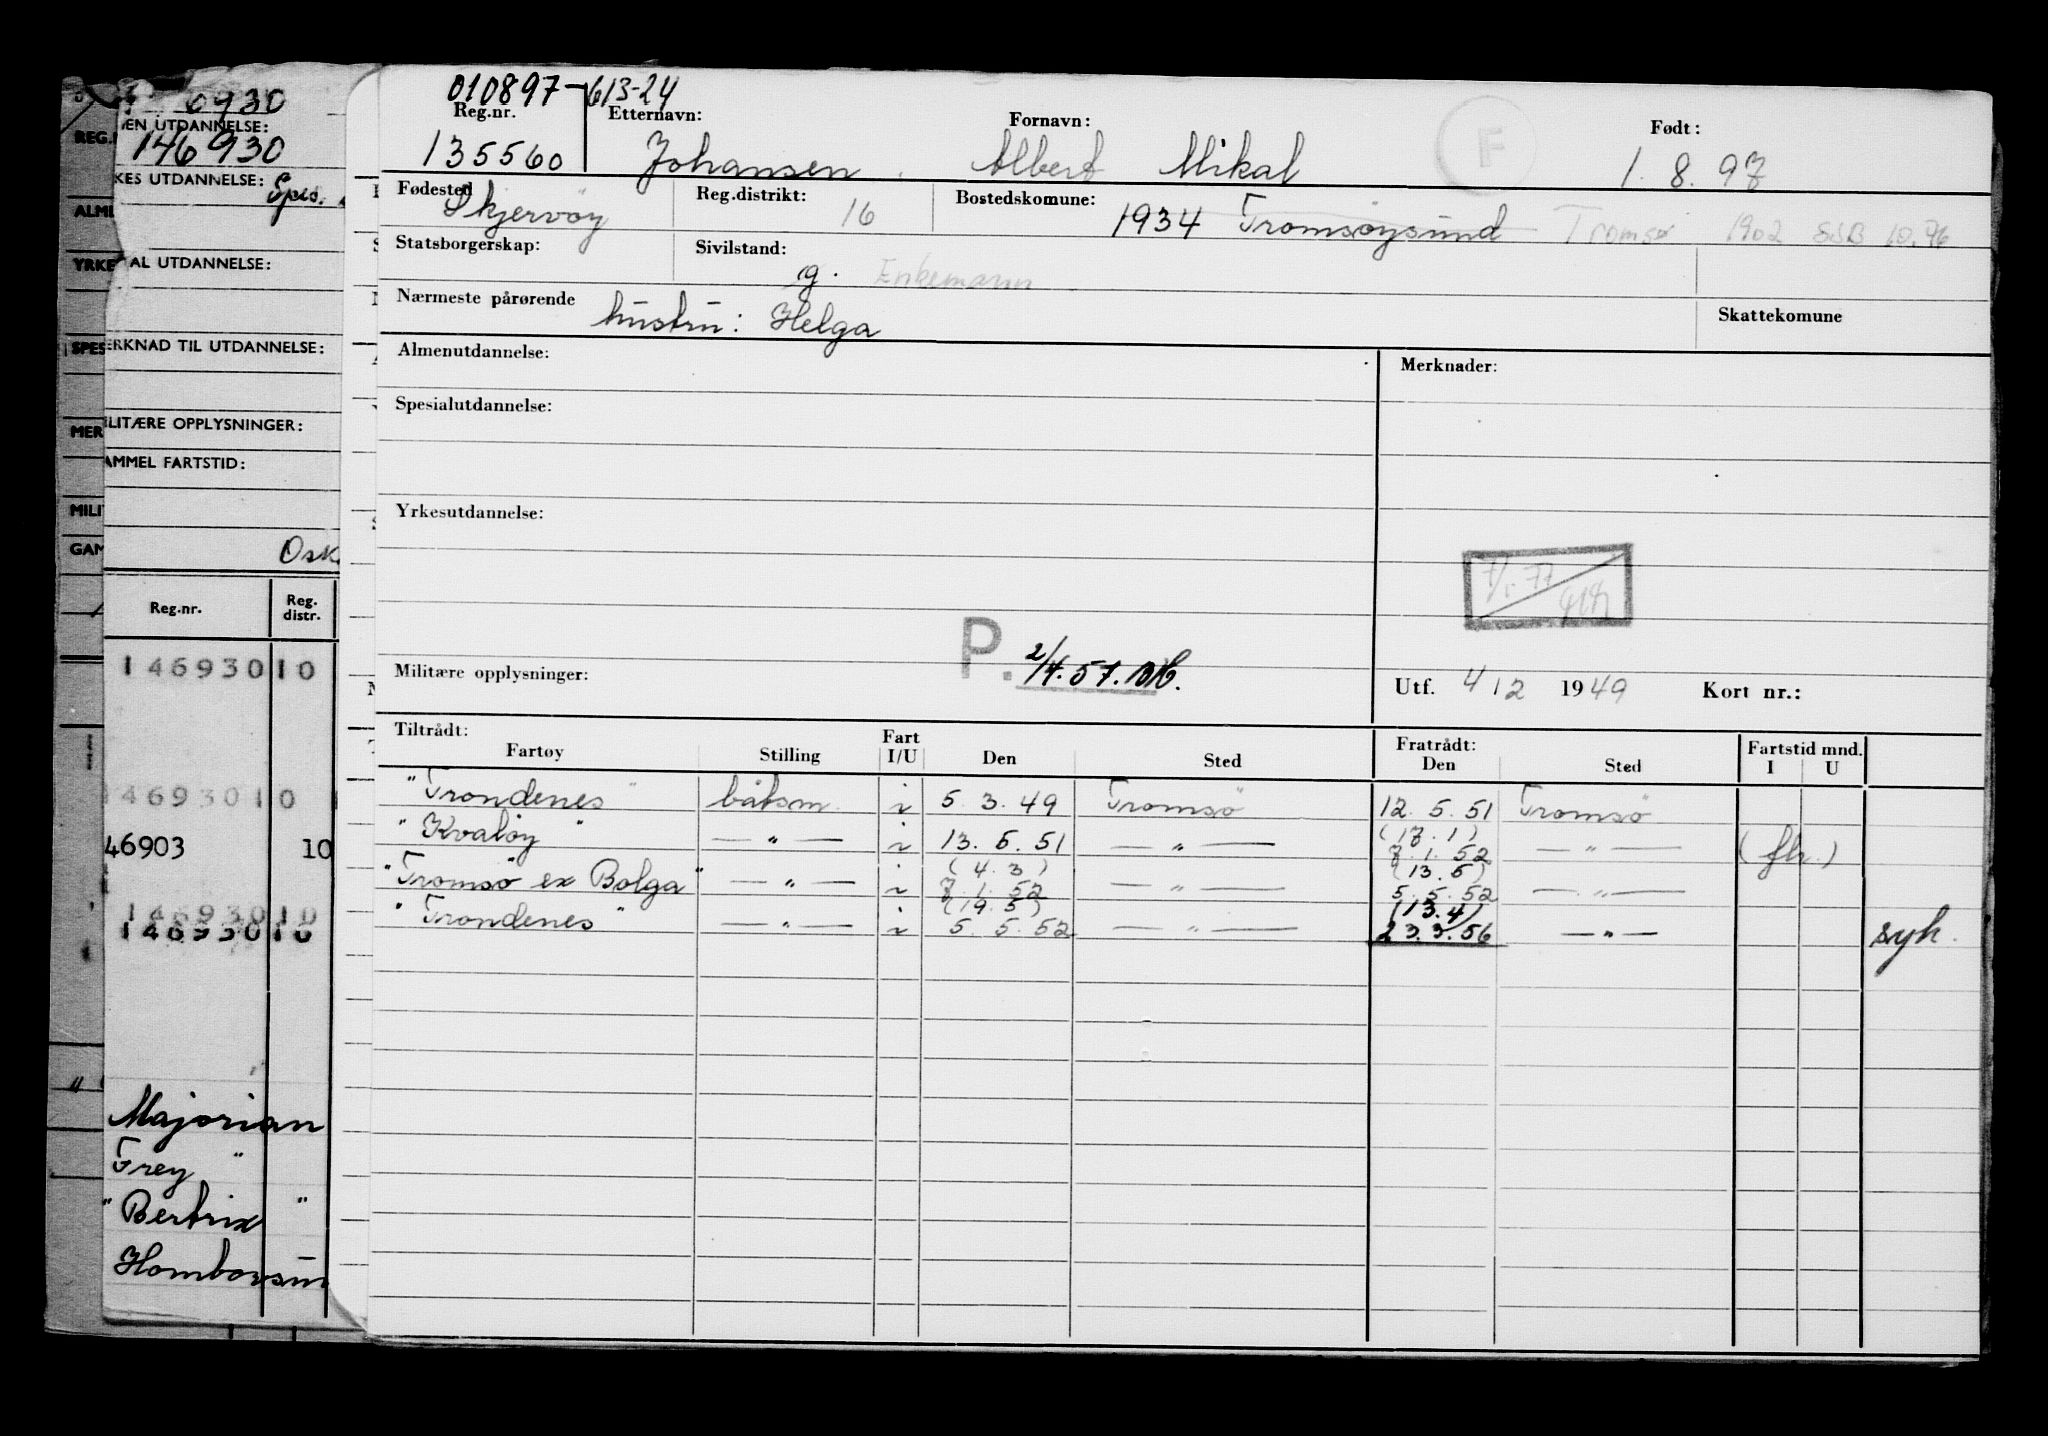 6930
EN UTDANNELSE:
146930
KES UTDANNELSE: Spes.
AL UTDANNELSE:
ERKNAD TIL UTDANNELSE:
LITÆRE OPPLYSNINGER:
AMMEL FARTSTID:
Osk
Reg.nr. Reg. distr.
146930 10
146930 10
46903 10
146930 10
146930 10
Majorian
Frey "
"Bertrix "
Homborsun
REG.
ALME
YRKE
SPES
MER
MILI
GAM
010897-61324
Reg.nr. Etternavn: Fornavn: F Født:
135560 Johansen Albert Mikal 1. 8. 97
Fødested Reg.distrikt: Bostedskomune:
Skjervøy 16 1934 Tromsøysund Tromsø 1902 SSB 10.76
Statsborgerskap: Sivilstand:
g. Enkemann
Nærmeste pårørende hustru: Helga Skattekomune
Almenutdannelse: Merknader:
Spesialutdannelse:
Yrkesutdannelse:
7/1.77
P. 2/4.57.
Militære opplysninger: Utf. 4 12 1949 Kort nr.:
Tiltrådt: Fart Fratrådt: Fartstid mnd.
Fartøy Stilling I/U Den Sted Den Sted I U
"Trondenes" båtsm. i 5. 3. 49 Tromsø 12. 5. 51 Tromsø
(17.1)
"Kvaløy" — " — i 13. 5. 51 — " — 7. 1. 52 — " — (flr.)
(4.3) (13.5)
"Tromsø ex Bolga" — " — i 7. 1. 52 — " — 5. 5. 52 — " —
(19.5) (13.4)
"Trondenes" — " — i 5. 5. 52 — " — 23.3.56 — " — syk.